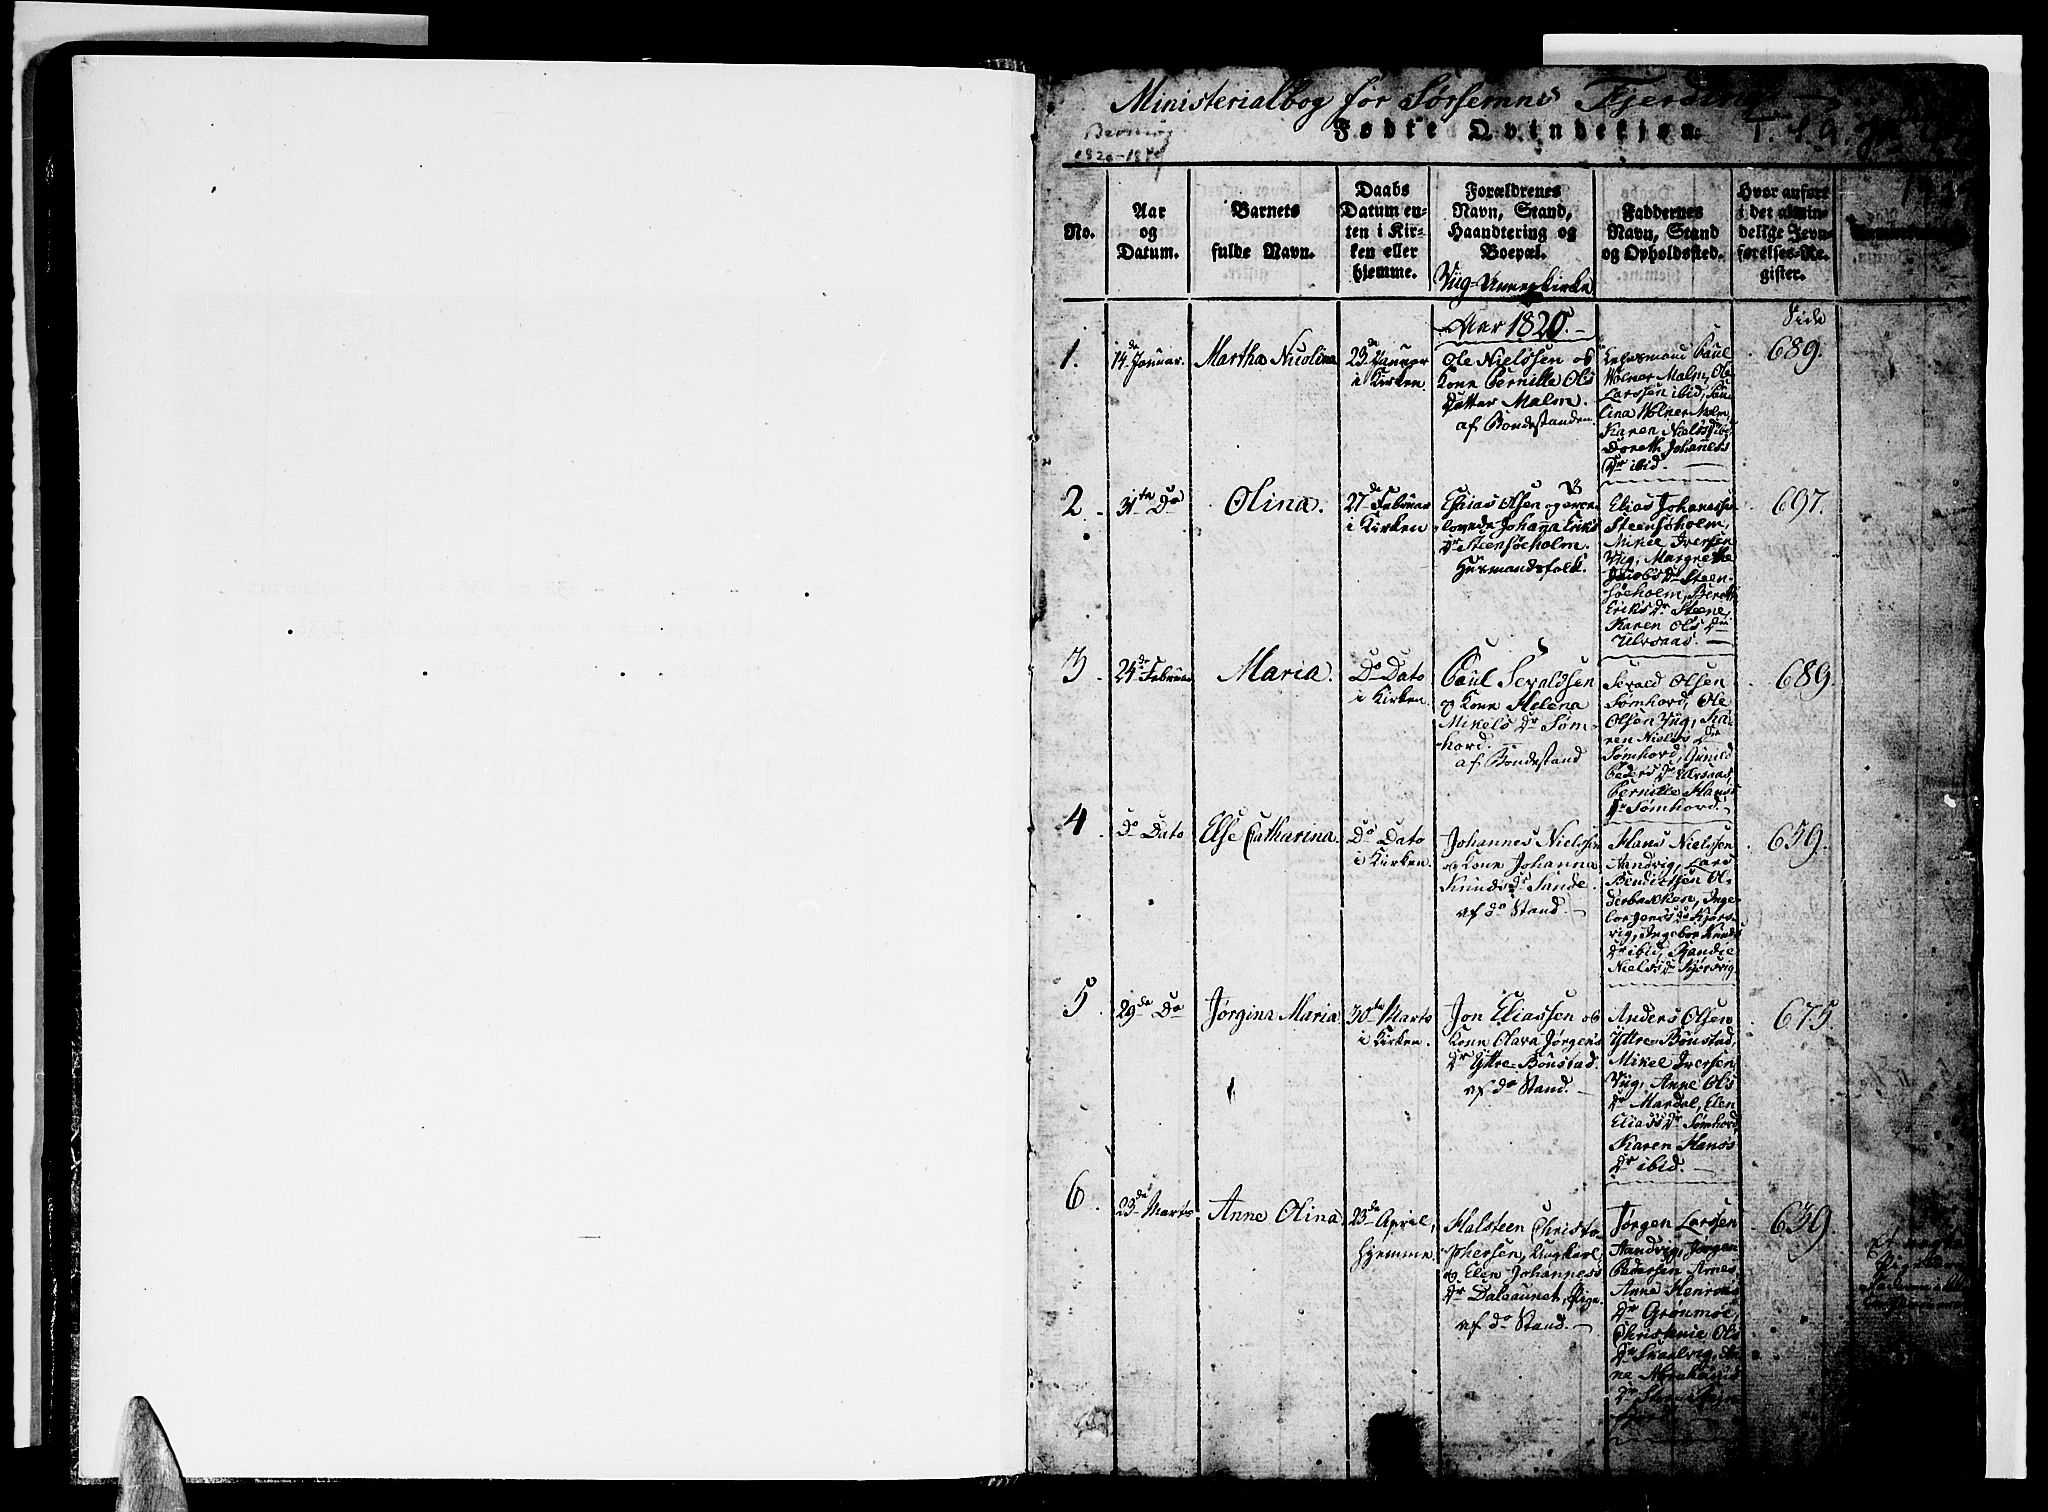 Ministerialbog for Sørsemnes Fjerding
1820-1829
Fødte Qvindekjøn.
No.
Aar
og
Datum.
Barnets
fulde Navn.
Daabs
Datum en-
ten i Kir-
ken eller
hjemme.
Forældrenes
Navn, Stand,
Haandtering og
Boepæl.
Faddernes
Navn, Stand
og Opholdssted.
Hvor anført
i det almin-
delige Jevn-
førelses-Re-
gister.
Viig-Annexkirke
Aar 1820.
Side
1.
14de Januar.
Martha Nicolina
23de Januar
i Kirken
Ole Nielssen og
Kone Pernille Ols
Datter Malm.
af Bondestanden.
Lehnsmand Paul
Wolner Malm, Ole
Larssen ibid,
lina Wolner Malm,
Karen Niels Dr ibid
Doroth Johannes
Dr ibid.
689.
2.
31te Do
Olina.
27de Februar
i Kirken
Esaias Olsen og
lovede Johana Eriks
Dr Steensøeholm.
Huusmandsfolk.
Elias Johanessen
Steensøholm,
Mikel Iversen
Viig, Margrethe
Jacobs Dr Steen-
søeholm, Bereth
Eriks Dr Steene,
Karen Ols Dr
Ulvsaas.
697.
3.
24de Februar
Maria.
Do Dato
i Kirken.
Paul Sevaldsen
og Kone Helena
Mikels Dr Søm-
hord.
af Bondestand
Sevald Olsen
Sømhord, Ole
Olsen Viig, Ka-
ren Niels Dr
Sømhord, Gunild
Peders Dr Ulvsaas,
Pernille Hans
Dr Sømhord.
689
4.
Do Dato
Else Catharina.
Do Dato
i Kirken.
Johannes Nielssen
og Kone Johanna
Knuds Dr Sunde.
af do Stand.
Hans Nielssen
Aandvig, Lars
Bendictsen Ol-
derbakken, Inge-
bor Jens Dr Kjørs-
vig, Ingebor Knuds
Dr ibid, Randie
Niels Dr Kjørsvig
659.
5.
29de Do
Jørgina Maria
30te Marts
i Kirken.
Jon Eliassen og
Kone Olava Jørgens
Dr Yttre-Bønstad.
af do Stand.
Anders Olsen
Yttre-Bønstad,
Mikel Iversen
Viig, Anne Ols
Dr Mardal, Elen
Elias Dr Sømhord,
Karen Hans
Dr ibid.
675.
6.
23de Marts
Anne Olina.
23de April,
hjemme.
Halsteen Christo-
phersen, Ungkarl,
og Elen Johannes
Dr Daleaunet, Pige.
af do Stand.
Jørgen Larssen
Aandvig, Jørgen
Pedersen Arnes,
Anne Henriks
Dr Grønmoe,
Christenie Ols
Dr Skaalvig,
ne Abrahams
Dr
639.